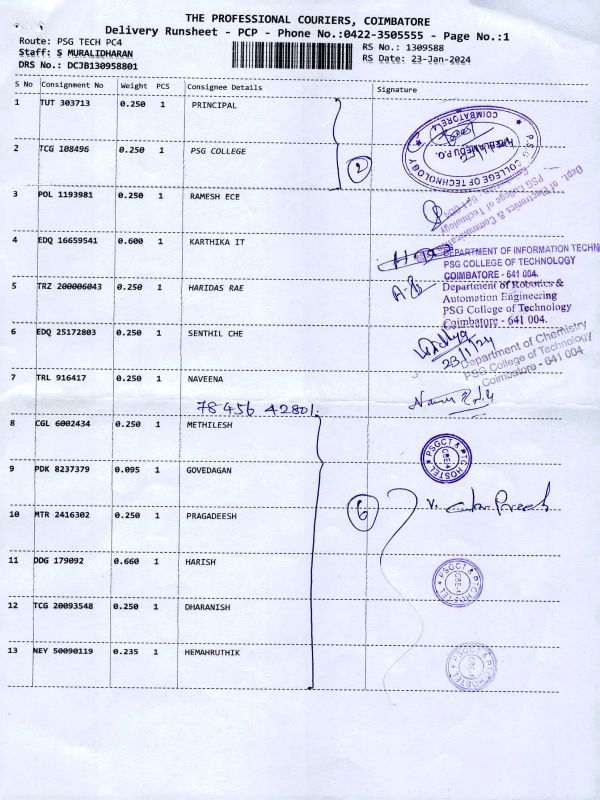 THE PROFESSIONAL COURIERS, COIMBATORE
Delivery Runsheet - PCP - Phone No.:0422-3505555 - Page No.:1
Route: PSG TECH PC4
Staff: S MURALIDHARAN
DRS No.: DCJB130958801
RS No.: 1309588
RS Date: 23-Jan-2024
S No Consignment No Weight PCS Consignee Details Signature
1 TUT 303713 0.250 1 PRINCIPAL
2 TCG 108496 0.250 1 PSG COLLEGE
2
PSG COLLEGE OF TECHNOLOGY
COIMBATORE-4
PEELAMEDU P.O.
3 POL 1193981 0.250 1 RAMESH ECE
Dept. of Electronics & Communication
PSG College of Technology
4 EDQ 16659541 0.600 1 KARTHIKA IT
DEPARTMENT OF INFORMATION TECHN
PSG COLLEGE OF TECHNOLOGY
COIMBATORE - 641 004.
5 TRZ 200006043 0.250 1 HARIDAS RAE
Department of Robotics &
Automation Engineering
PSG College of Technology
Coimbatore - 641 004.
6 EDQ 25172803 0.250 1 SENTHIL CHE
Vidhya
23/1/24
Department of Chemistry
PSG College of Technology
Coimbatore - 641 004
7 TRL 916417 0.250 1 NAVEENA
78456 42801.
8 CGL 6002434 0.250 1 METHILESH
PSGCT & PTC HOSTEL
CBE-4
9 PDK 8237379 0.095 1 GOVEDAGAN
6
10 MTR 2416302 0.250 1 PRAGADEESH
11 DDG 179092 0.660 1 HARISH
PSGCT & PTC HOSTEL
CBE-4
12 TCG 20093548 0.250 1 DHARANISH
13 NEY 50090119 0.235 1 HEMAHRUTHIK
PSGCT & PTC HOSTEL
CBE-4